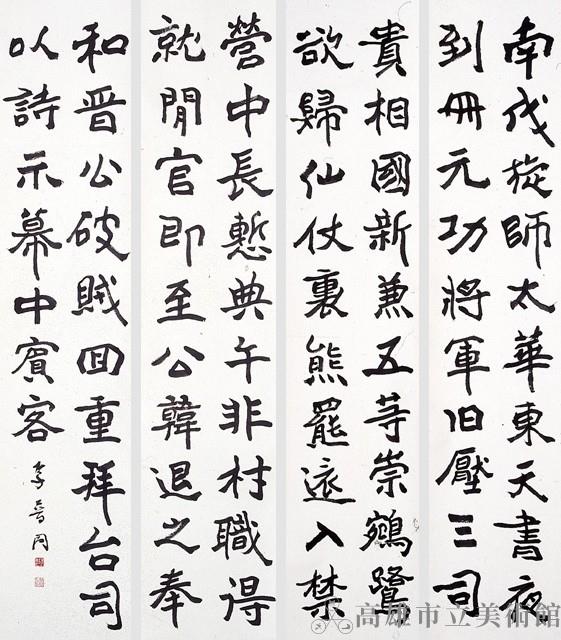 南伐旋師太華東天書夜
到冊元功將軍旧壓三司
貴相國新兼五等崇鵷鷺
欲歸仙仗裏熊羆還入禁
營中長慙典午非材職得
就閒官即至公韓退之奉
和晉公破賊囬重拜台司
以詩示幕中賓客
李普同
高雄市立美術館